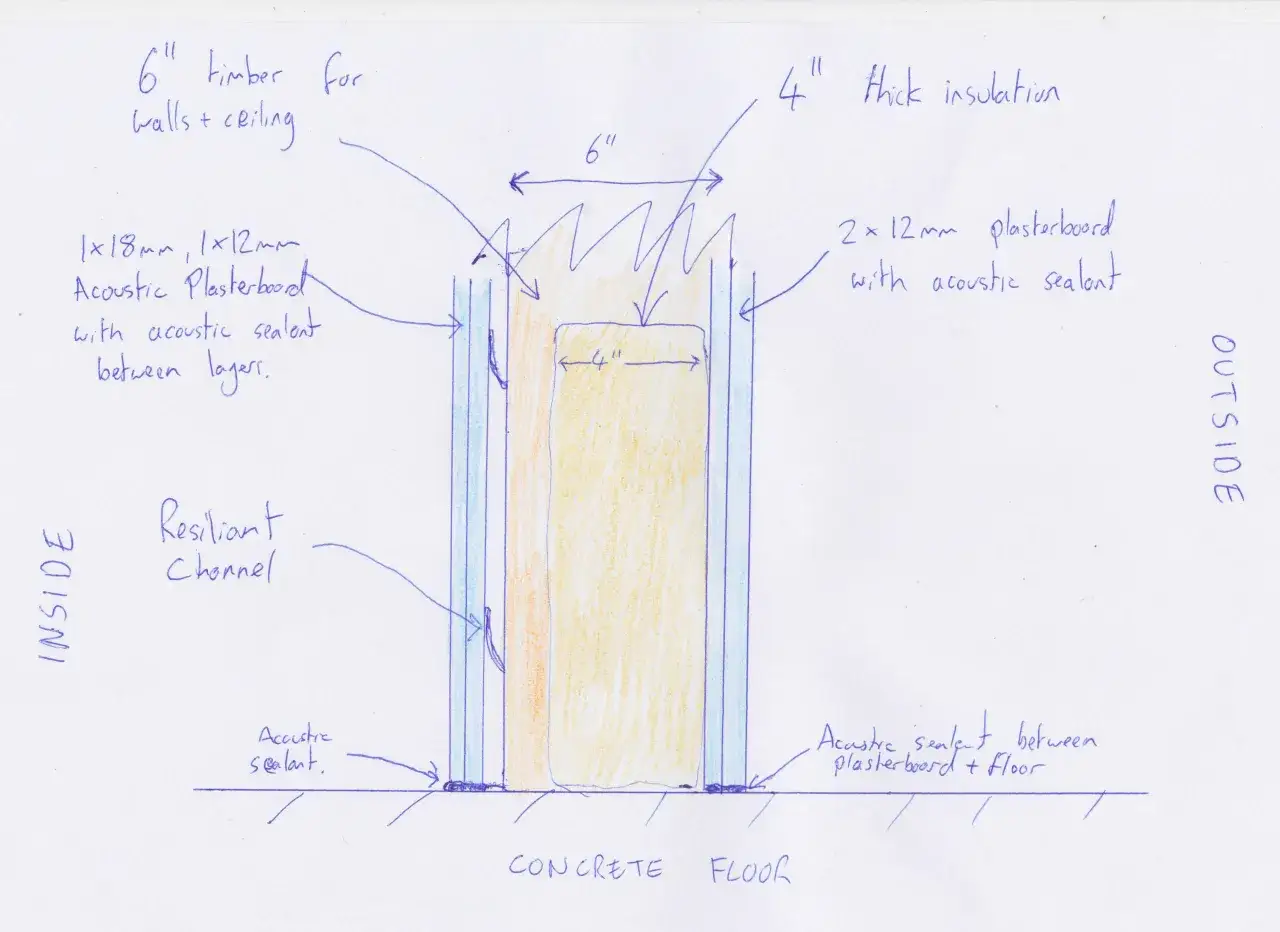 6" timber for
walls + ceiling
4" thick insulation
6"
1x18mm, 1x12mm
Acoustic Plasterboard
with acoustic sealant
between layers.
2 x 12mm plasterboard
with acoustic sealant
4"
OUTSIDE
INSIDE
Resiliant
Channel
Acoustic
sealant.
Acoustic sealant between
plasterboard + floor
CONCRETE FLOOR